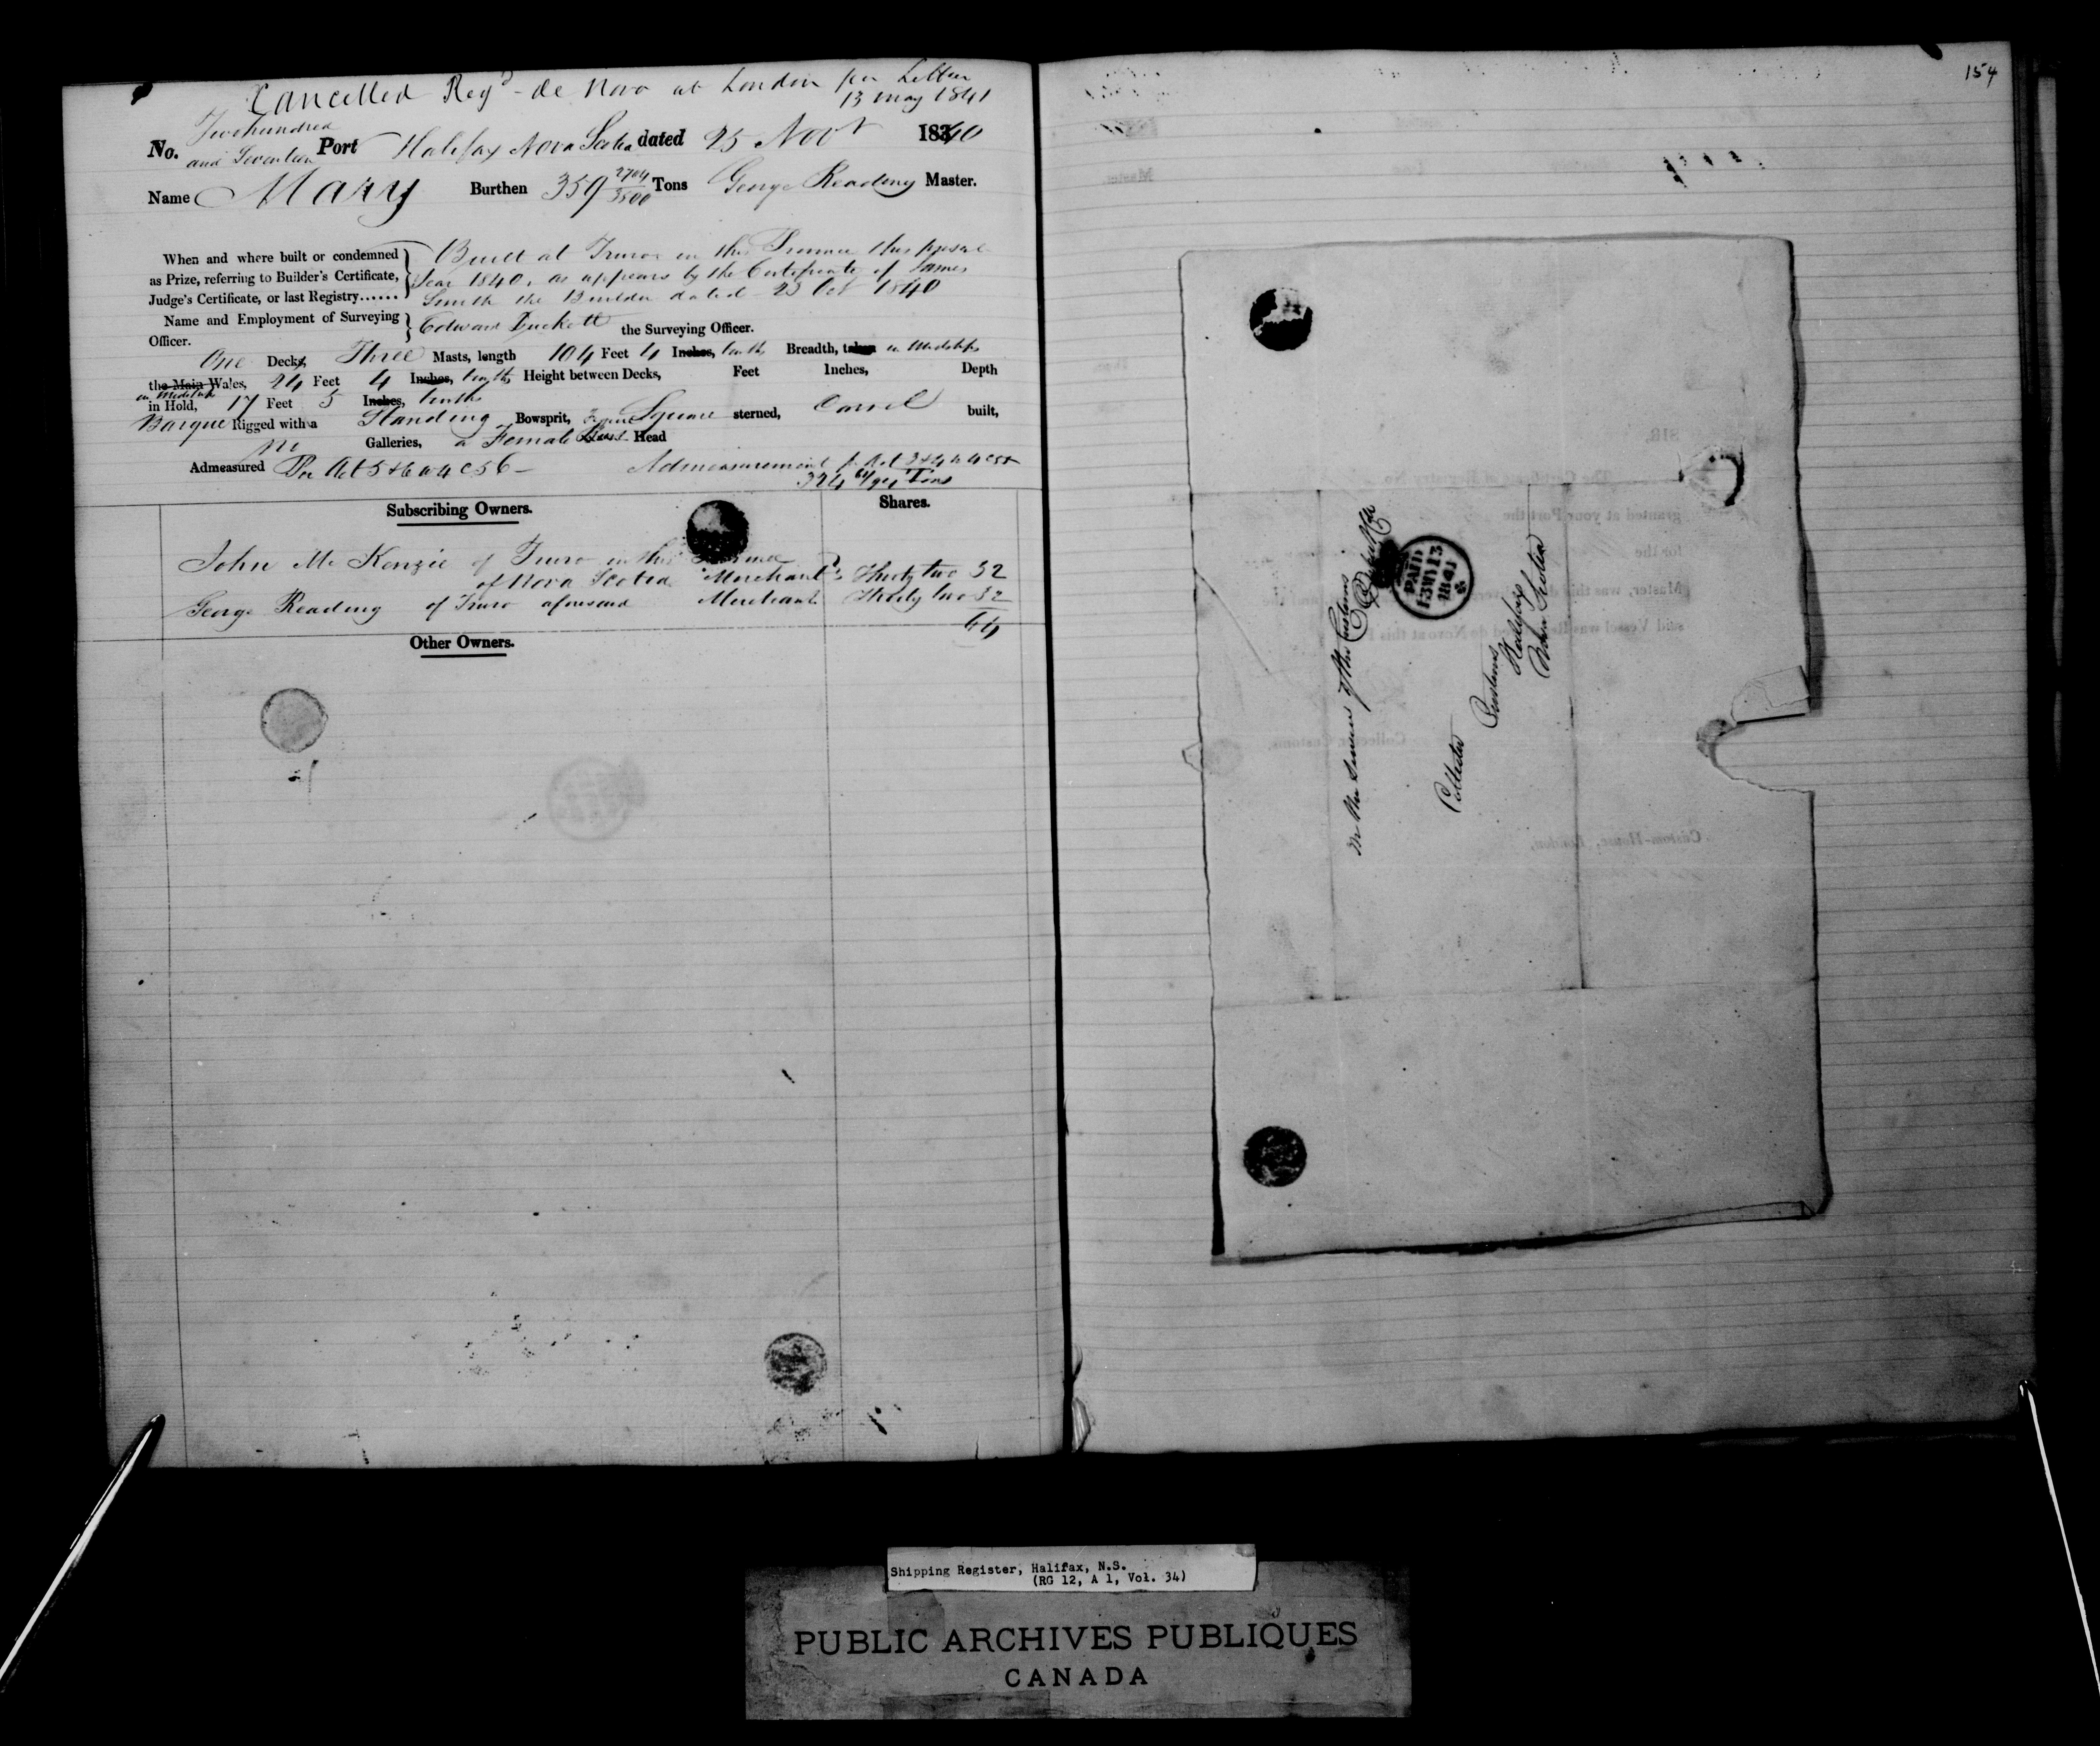 Cancelled Regd de Novo at London per Letter
13 May 1841
No. Two hundred and Seventeen Port Halifax Nova Scotia dated 25 Novr 1840
Name Mary Burthen 359 2704/3500 Tons George Reading Master.
When and where built or condemned
as Prize, referring to Builder's Certificate,
Judge's Certificate, or last Registry......
Built at Truro in this Province this present
Year 1840, as appears by the Certificate of James
Smith the Builder dated 23 Oct 1840
Name and Employment of Surveying
Officer.
Edward the Surveying Officer.
One Decks, Three Masts, length 104 Feet 4 Inches, tenths Breadth, taken in Midships
the Main Wales, 24 Feet 4 Inches, tenths Height between Decks, Feet Inches, Depth
in Midships
in Hold, 17 Feet 5 Inches, tenths
Barque Rigged with a Standing Bowsprit, Square sterned, Carvel built,
no Galleries, a Female Bust Head
Admeasured Per Act 5 & 6 W 4 C 56
Admeasurement pr Act 3 & 4 W 4 C 55
324 61/94 Tons
Subscribing Owners.
Shares.
John Mc Kenzie of Truro in this Province
of Nova Scotia Merchant Thirty two 32
George Reading of Truro aforesaid Merchant Thirty two 32
64
Other Owners.
154
On the Service of the Customs
PAID
13 MY 13
1841
Collector
Customs
Halifax
Nova Scotia
SIR,
The Certificate of Registry No.
granted at your Port the
for the
Master, was this day
said Vessel was Registered de Novo at this Port
Collector, Customs.
Custom-House, London,
Shipping Register, Halifax, N.S.
(RG 12, A 1, Vol. 34)
PUBLIC ARCHIVES PUBLIQUES
CANADA